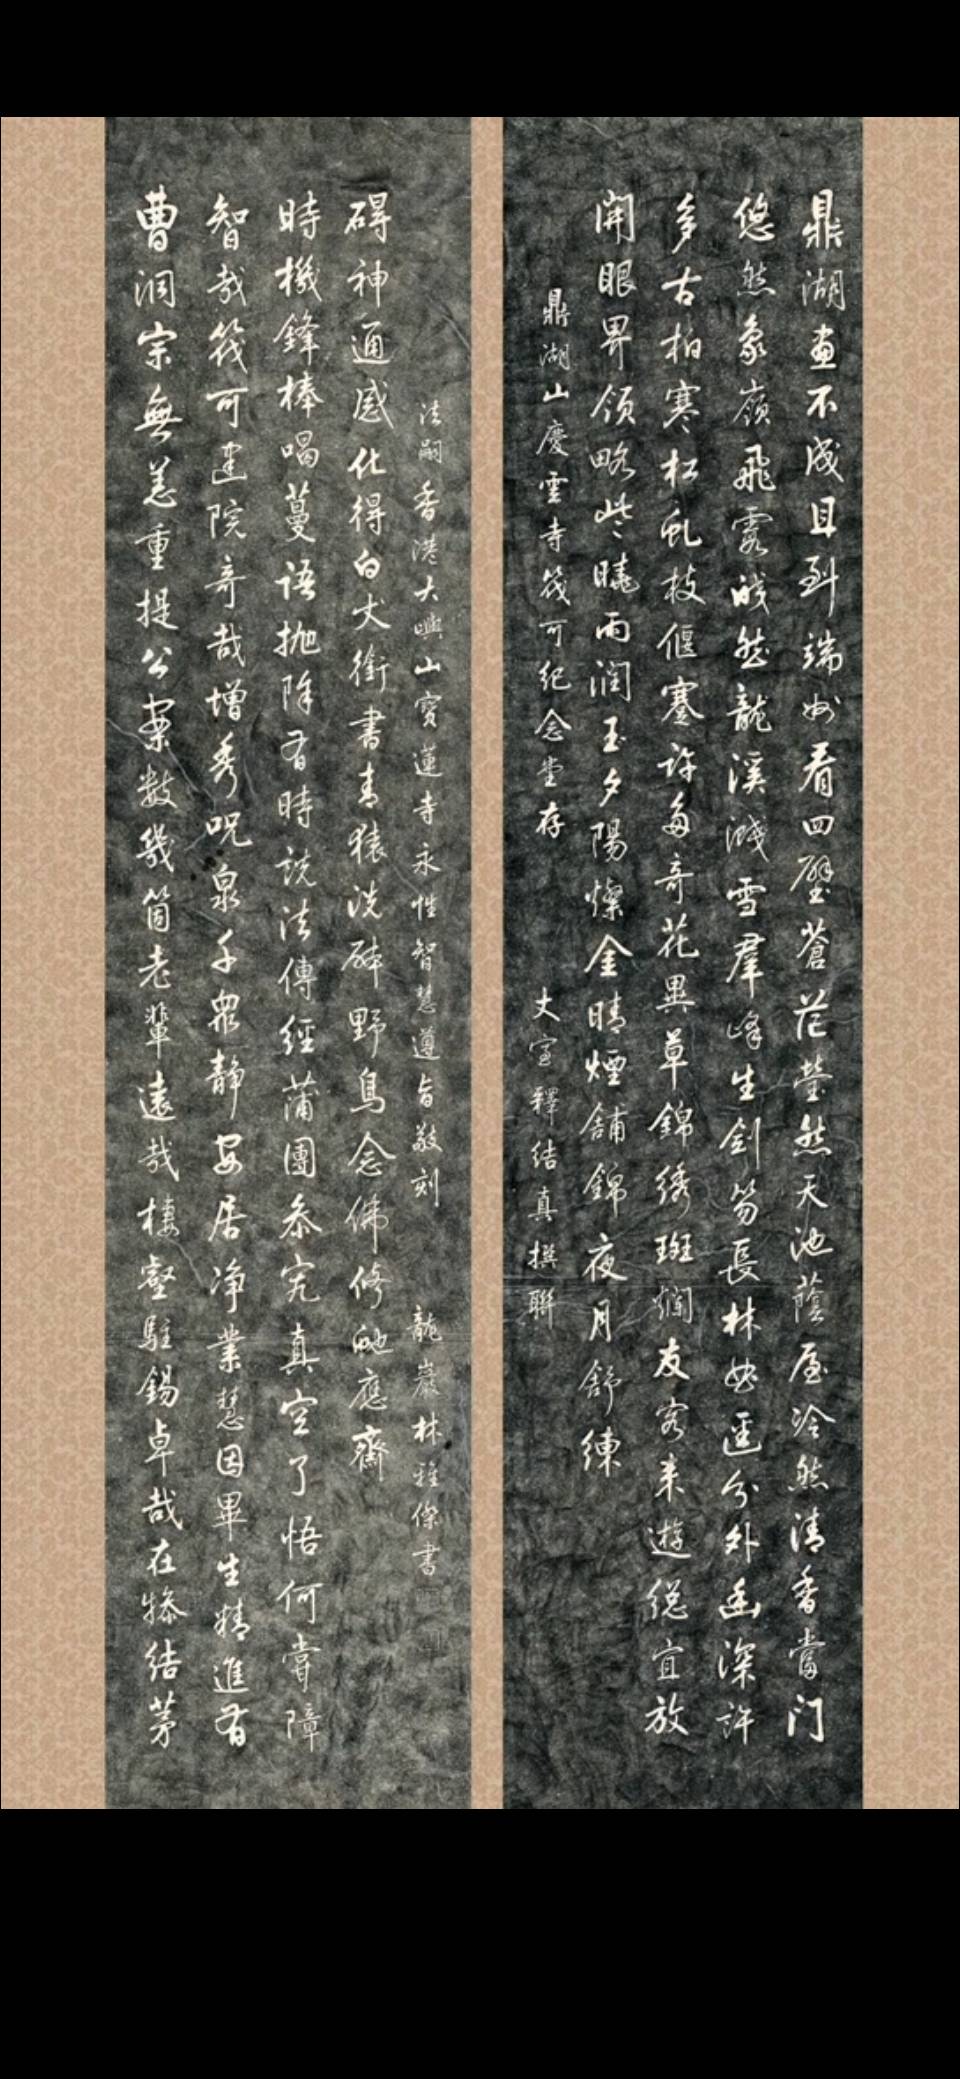 鼎湖畫不成且到端州看四壁蒼茫瑩然天池蔭屋冷然清香當门
悠然象嶺飛霞皎然龍溪濺雪羣峰生劍笏長林曲逕分外幽深許
多古柏寒松虬枝偃蹇許多奇花異草錦绣斑斕友客来遊總宜放
開眼界領略些曉雨润玉夕陽燦金晴煙鋪錦夜月舒練
鼎湖山慶雲寺筏可紀念堂存 丈室釋結真撰聯
曹洞宗無恙重提公案數幾箇老輩遠哉棲壑駐錫卓哉在犙結茅
智哉筏可建院奇哉增秀咒泉千眾靜安居淨業慧因畢生精進有
時機鋒棒喝蔓語抛除有時説法傳經蒲團參究真空了悟何嘗障
碍神通感化得白犬銜書青猿洗鉢野鳥念佛修虵應齋
法嗣香港大嶼山寶蓮寺永惺智慧遵旨敬刻 龍巖林雅傑書